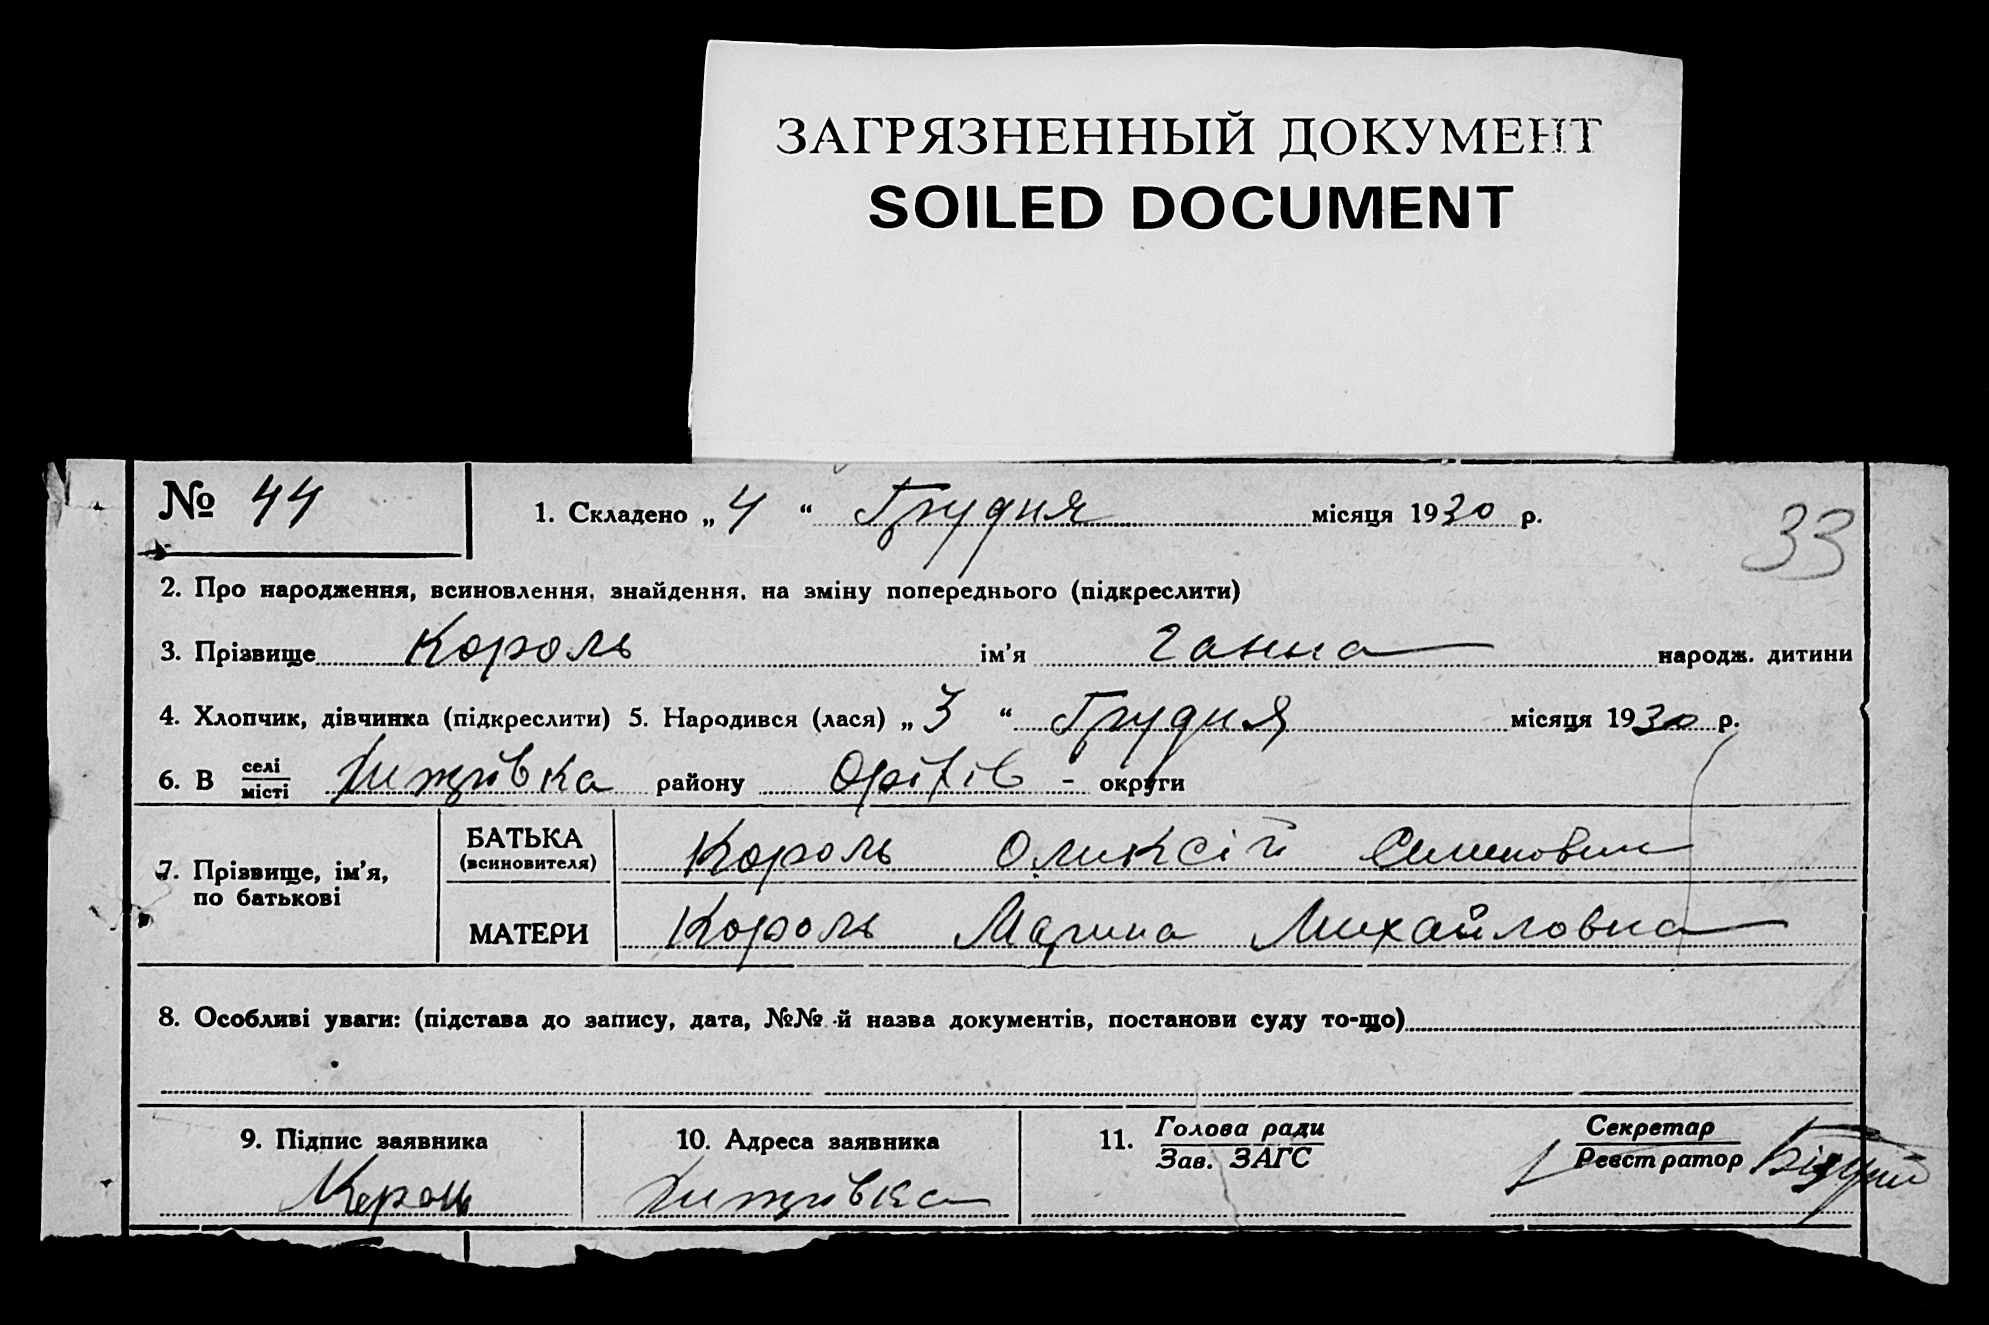 ЗАГРЯЗНЕННЫЙ ДОКУМЕНТ
SOILED DOCUMENT
№ 44
1. Складено „ 4 “ Грудня місяця 1930 р.
33
2. Про народження, всиновлення, знайдення, на зміну попереднього (підкреслити)
3. Прізвище Король ім'я Ганна народж. дитини
4. Хлопчик, дівчинка (підкреслити) 5. Народився (лася) „ 3 “ Грудня місяця 1930 р.
6. В селі/місті району Оріхів - округи
7. Прізвище, ім'я, по батькові
БАТЬКА (всиновителя) Король Оликсій Семенович
МАТЕРИ Король Марина Михайловна
8. Особливі уваги: (підстава до запису, дата, №№ й назва документів, постанови суду то-що)
9. Підпис заявника 10. Адреса заявника 11. Голова ради/Зав. ЗАГС Секретар/Реєстратор
Король